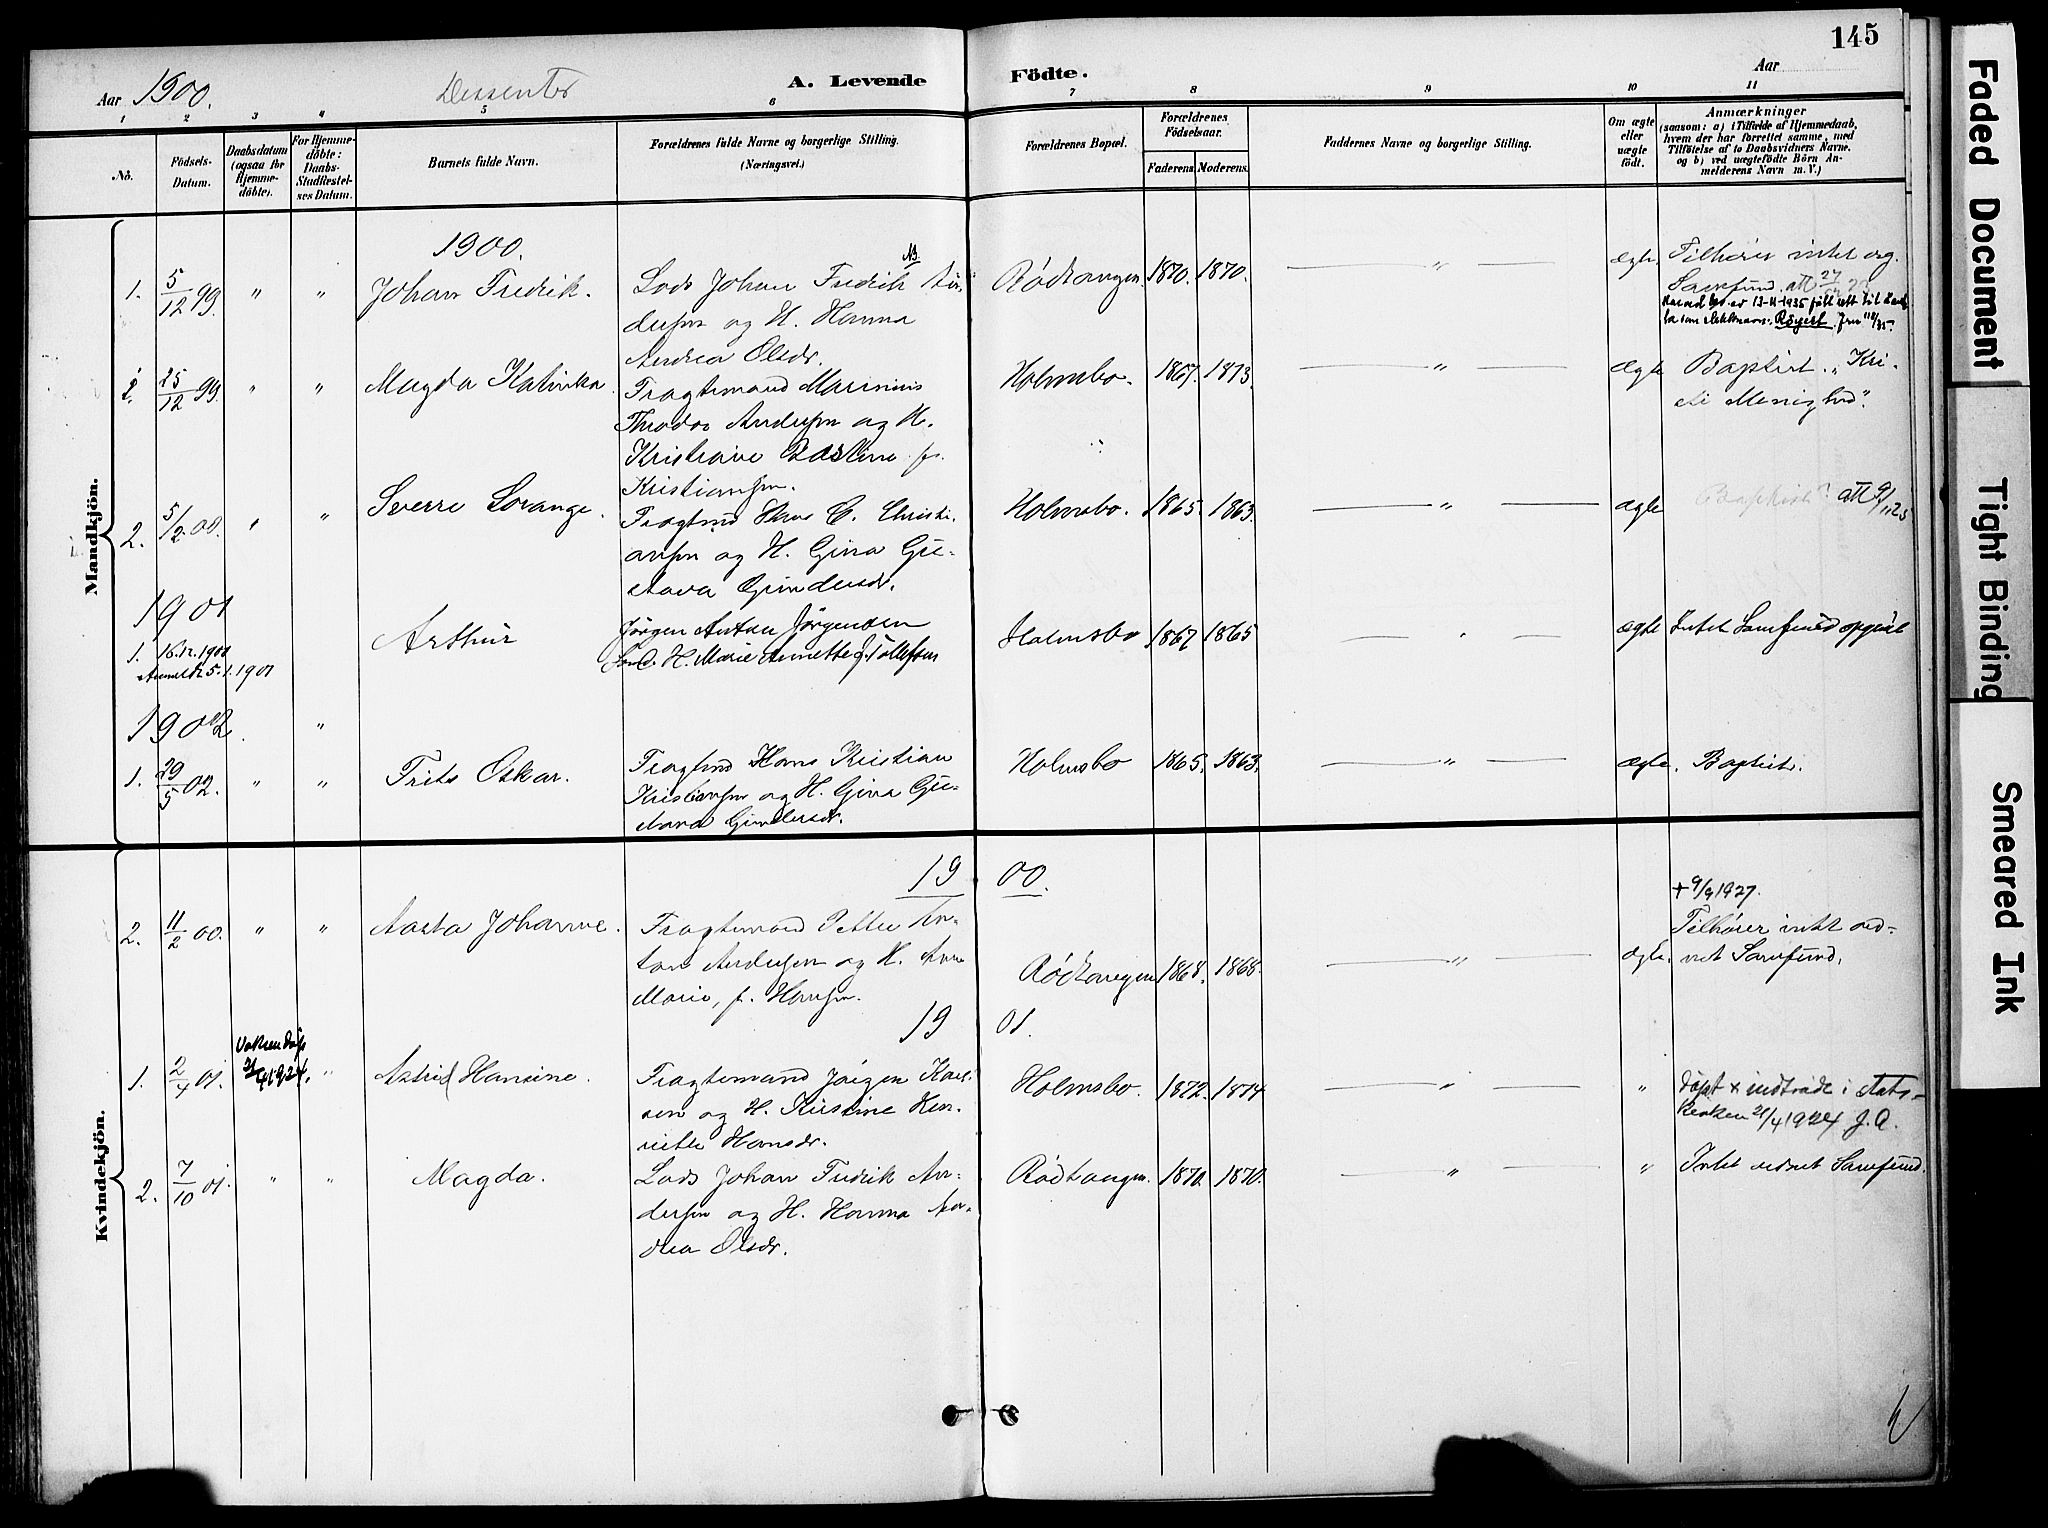 145
Aar 1900.
Dissenter
A. Levende
Födte.
Aar
1 2 3 4 5 6 7 8 9 10 11
No.
Födsels-
Datum.
Daabsdatum
(ogsaa for
Hjemme-
döbte).
For Hjemme-
döbte:
Daabs-
Stadfæstel-
ses Datum.
Barnets fulde Navn.
Forældrenes fulde Navne og borgerlige Stilling.
(Næringsvei.)
Forældrenes Bopæl.
Forældrenes
Födselsaar.
Faderens. Moderens.
Faddernes Navne og borgerlige Stilling.
Om ægte
eller
uægte
födt.
Anmærkninger
(saasom: a) i Tilfælde af Hjemmedaab,
hvem der har forrettet samme, med
Tilföielse af to Daabsvidners Navne,
og b) ved uægtefödte Börn An-
melderens Navn m. V.)
Mandkjön.
1900.
1. 5/12 99. " " Johan Fredrik. Lods Johan Fredrik An-
dersen og H. Hanna
Andrea Olsdr.
Rødtangen 1870. 1870. " ægte. Tilhører intet og.
Samfund.
1. 25/12 99. " " Magda Katinka Fragtemand Marinius
Theodor Andersen og H.
Kristiane f.
Kristiansen.
Holmsbo. 1867. 1873. " ægte Baptist. "Kri-
sti Menighed".
2. 5/2 00. " " Sverre Lorange. Fragtmd Hans C. Christi-
ansen og H. Gina Gu-
stava Gundersdr.
Holmsbo. 1865. 1863. " ægte Baptist? att 9/11 25
1901
1. 16.12.1900
Anmeldt 5.1.1901
Arthur
Jørgen Anton Jørgensen
H. Marie Annette f. Tollefsen
Holmsbo 1867 1865 " ægte Intet Samfund opgivet
1902. "
1. 29/5 02. " " Frits Oskar. Fragtmd Hans Kristian
Kristiansen og H. Gina Gu-
stava Gundersdr.
Holmsbo 1865. 1863. " ægte. Baptist.
Kvindekjön.
1900.
+ 9/9 1927.
2. 11/2 00. " " Aasta Johanne. Fragtemand Petter An-
ton Andersen og H. Anne
Marie, f. Hansen.
Rødtangen 1868. 1868. " ægte. Tilhører intet ord-
net Samfund.
1901.
Voksendåp
21/4 1924.
1. 2/4 01. " Astrid Hansine. Fragtemand Jørgen Karl-
sen og H. Kristine Hen-
riette Hansdr.
Holmsbo. 1872. 1874 " " døpt & indtråde i stats-
kirken 21/4 1924 J.A.
2. 7/10 01. " " Magda. Lods Johan Fredrik An-
dersen og H. Hanna An-
drea Olsdr.
Rødtangen. 1870. 1870. " " Intet ordnet Samfund.
Faded Document
Tight Binding
Smeared Ink